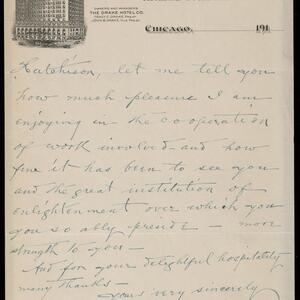 OWNERS AND MANAGERS
THE DRAKE HOTEL CO.
TRACY C. DRAKE, PRES'T
JOHN B. DRAKE, VICE PRES'T
CHICAGO, 191
Hutchison, let me tell you
how much pleasure I am
enjoying in the co-operation
of work involved - and how
fine it has been to see you
and the great institution of
enlightenment over which you
you so ably preside - more
strength to you -
And for your delightful hospitality
many thanks -
Yours very sincerely